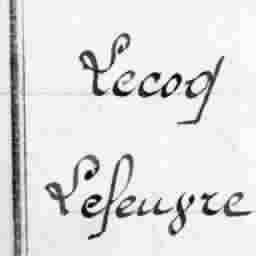 Lecoq
Lefeuvre